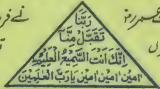 رَبَّنَا
تَقَبَّلْ مِنَّا
اِنَّكَ اَنْتَ السَّمِيْعُ الْعَلِيْمُ
اٰمین اٰمین اٰمین یا رَبَّ الْعٰلَمِیْنَ